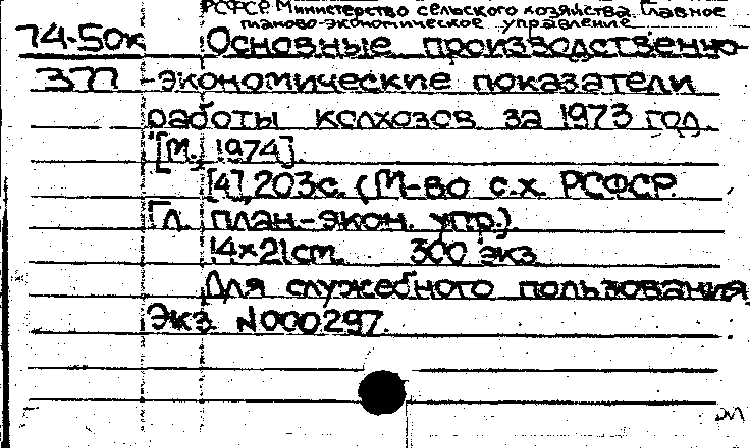 РСФСР. Министерство сельского хозяйства. Главное
планово-экономическое управление
74-50к Основные производственно-
377 -экономические показатели
работы колхозов за 1973 год.
[М., 1974].
[4], 203с. (М-во с.х. РСФСР.
Гл. план.-экон. упр.).
14×21см. 300 экз.
Для служебного пользования
Экз. N000297.